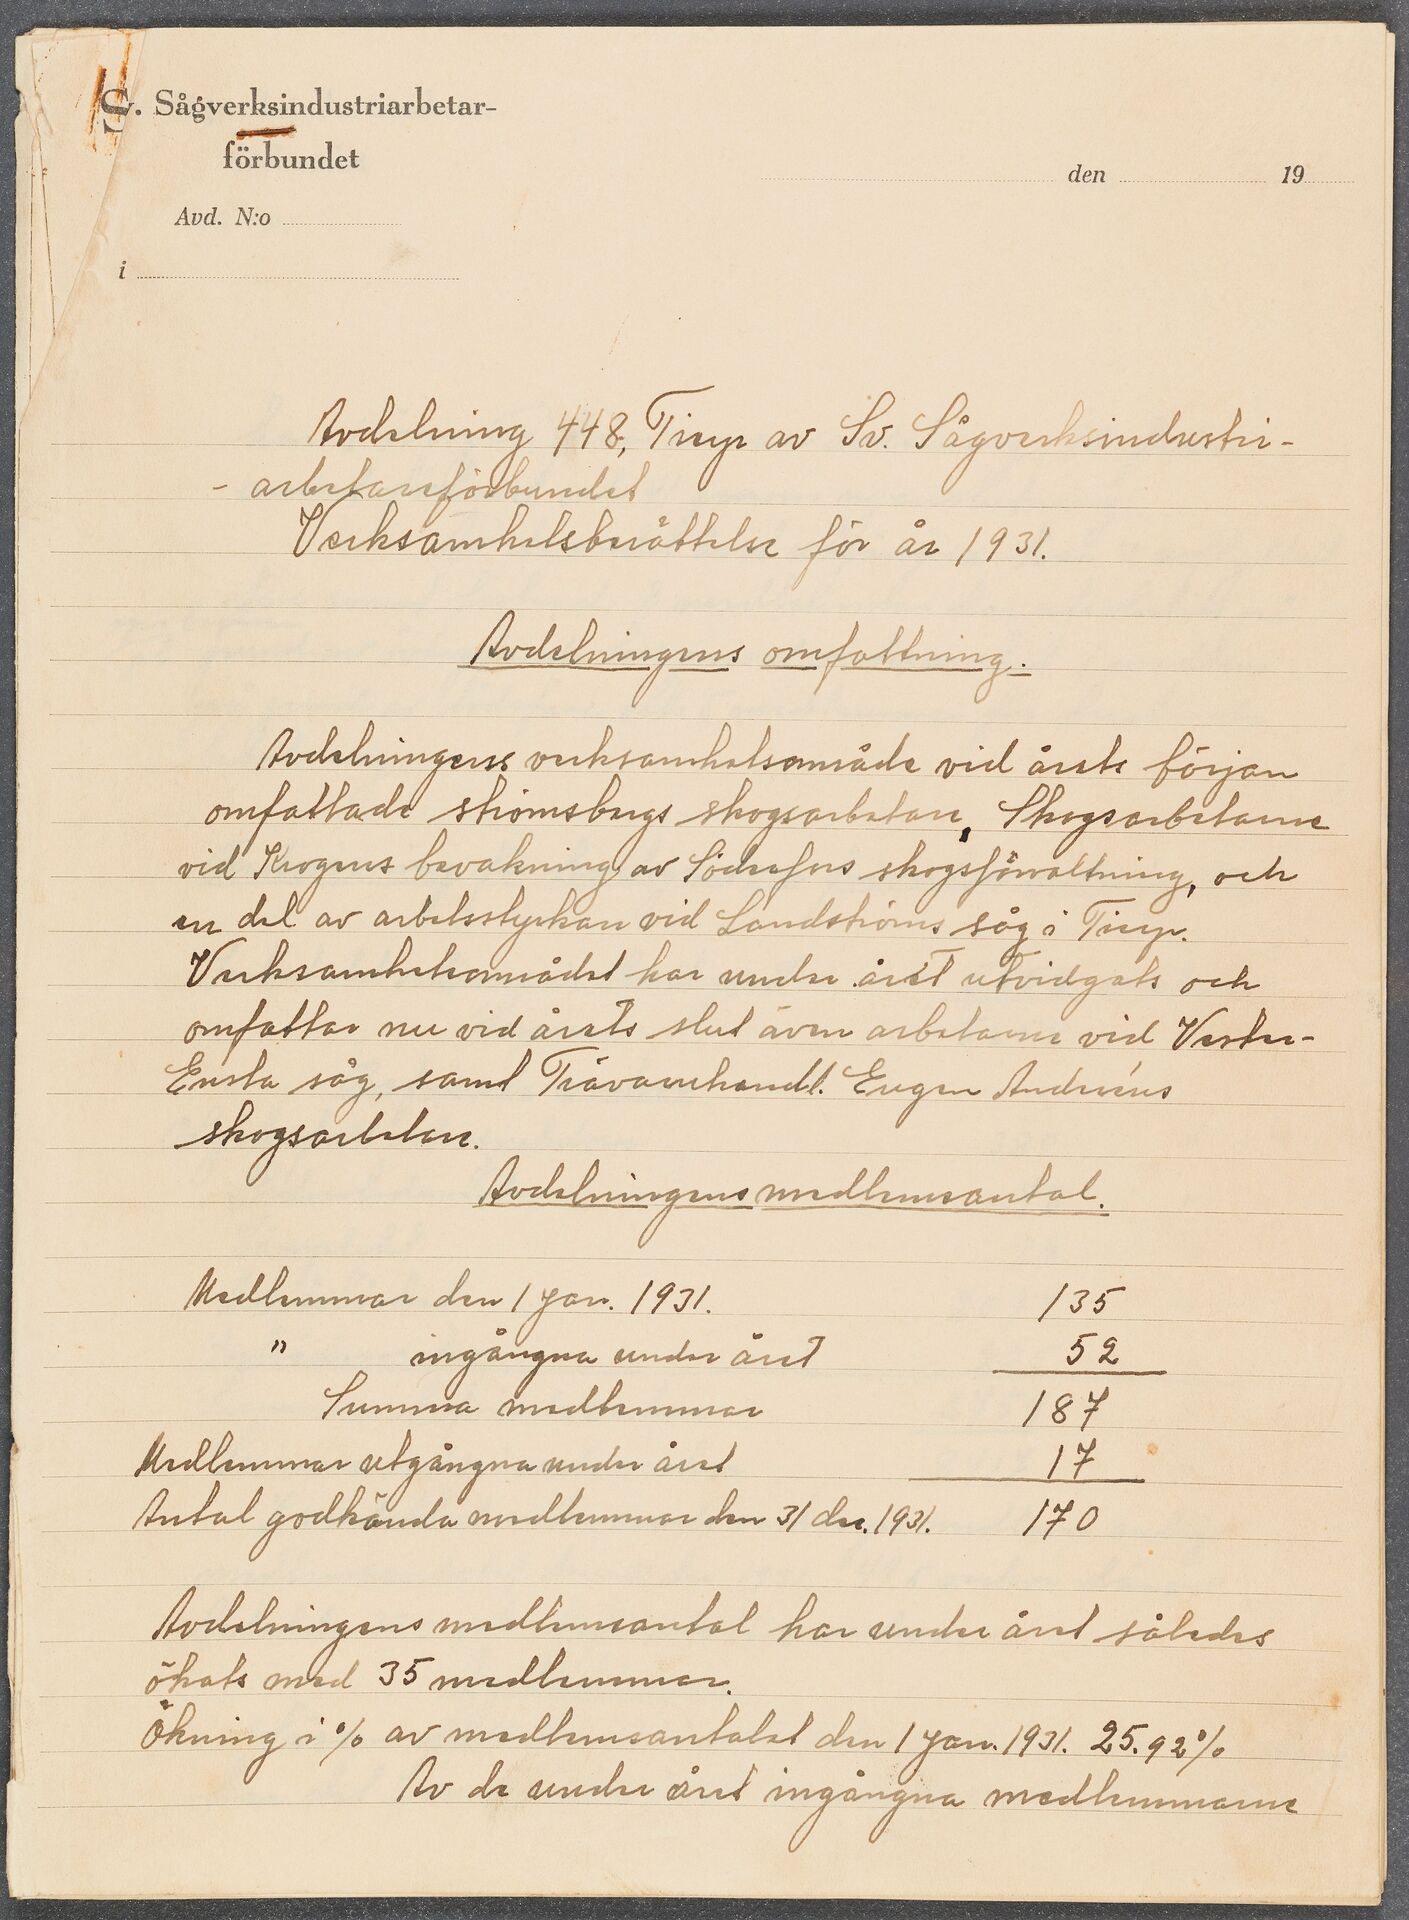 S. Sågverksindustriarbetar-
förbundet
den 19
Avd. N:o
i
Avdelning 448, Tierp av Sv. Sågverksindustri-
- arbetareförbundet
Verksamhetsberättelse för år 1931.
Avdelningens omfattning.
Avdelningens verksamhetsområde vid årets början
omfattade strömsbergs skogsarbetare, Skogsarbetarne
vid Krogens bevakning av Söderfors skogsförvaltning, och
en del av arbetsstyrkan vid Landströms såg i Tierp.
Verksamhetsområdet har under året utvidgats och
omfattar nu vid årets slut även arbetarne vid Vester-
Ensta såg, samt Trävaruhandl. Eugen Andréns
skogsarbetare.
Avdelningens medlemsantal.
Medlemmar den 1 jan. 1931. 135
" ingångna under året 52
Summa medlemmar 187
Medlemmar utgångna under året 17
Antal godkända medlemmar den 31 dec. 1931. 170
Avdelningens medlemsantal har under året således
ökats med 35 medlemmar.
Ökning i % av medlemsantalet den 1 jan. 1931. 25.92%
Av de under året ingångna medlemmarne